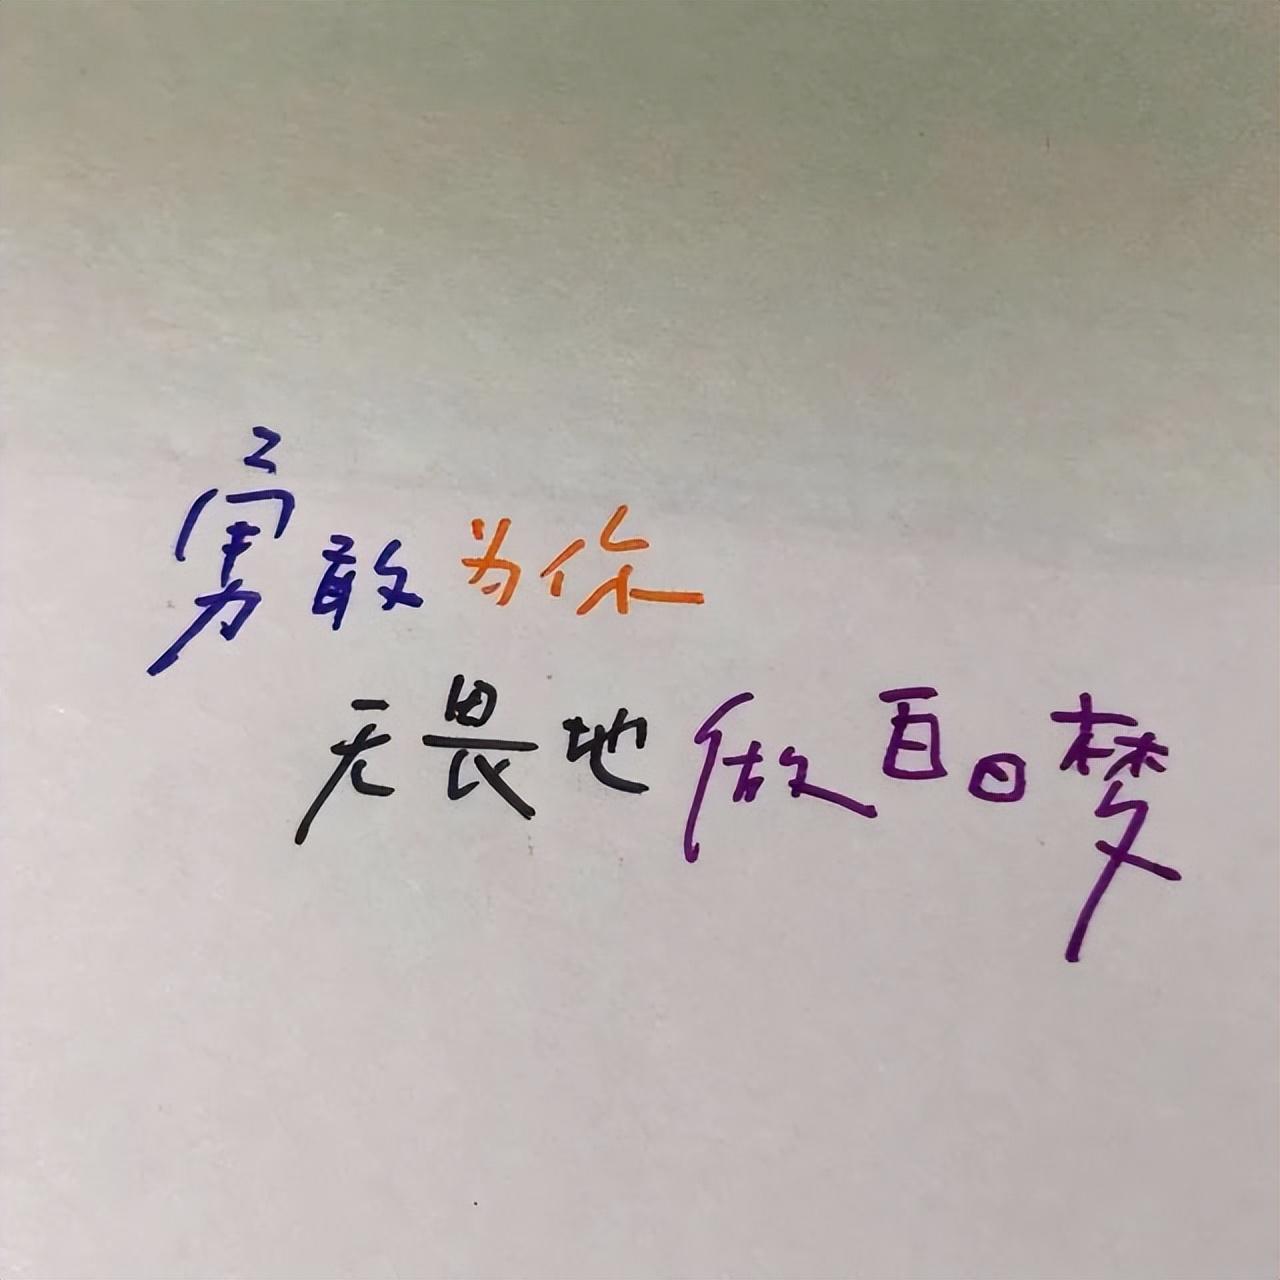 勇敢为你
无畏地做百日梦